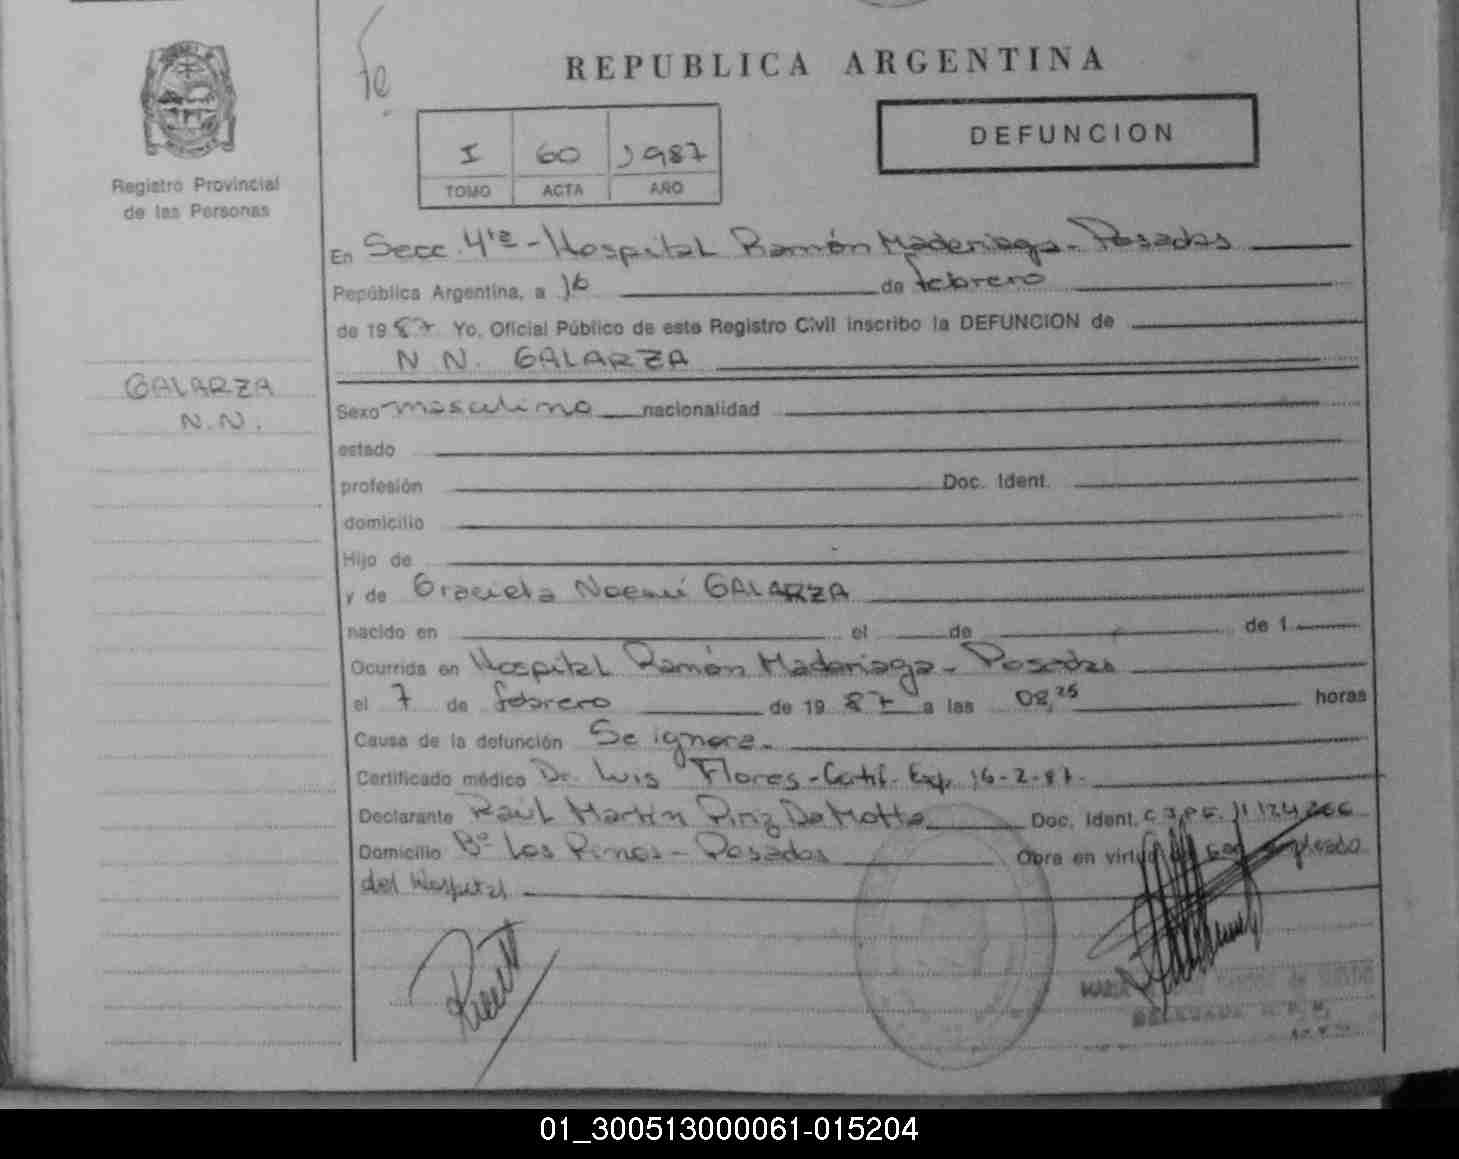 REPUBLICA ARGENTINA
Registro Provincial
de las Personas
I 60 1987
TOMO ACTA AÑO
DEFUNCION
En Secc. 4ta - Hospital Ramón Madariaga - Posadas
República Argentina, a 16 de febrero
de 1987 Yo, Oficial Público de este Registro Civil inscribo la DEFUNCION de
N N. GALARZA
GALARZA
N.N.
Sexo masculino nacionalidad
estado
profesión Doc. Ident.
domicilio
Hijo de
y de Graciela Noemí GALARZA
nacido en el de de 1
Ocurrida en Hospital Ramón Madariaga - Posadas
el 7 de febrero de 1987 a las 08,25 horas
Causa de la defunción Se ignora.
Certificado médico Dr. Luis Flores - Certif. Exp. 16-2-87.
Declarante Raúl Martín Piriz Da Motta Doc. Ident.
Domicilio Bº Los Pinos - Posadas Obra en virtud de ser empleado
del Hospital
01_300513000061-015204